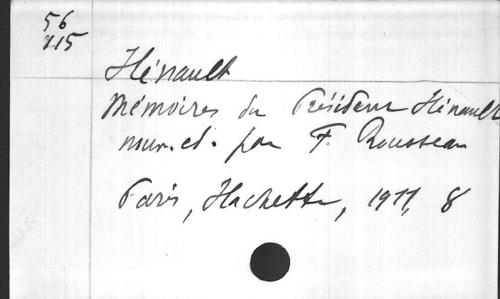 56
715
Hénault
Mémoires du Président Hénault
nouv. ed. par F. Rousseau
Paris, Hachette, 1911, 8